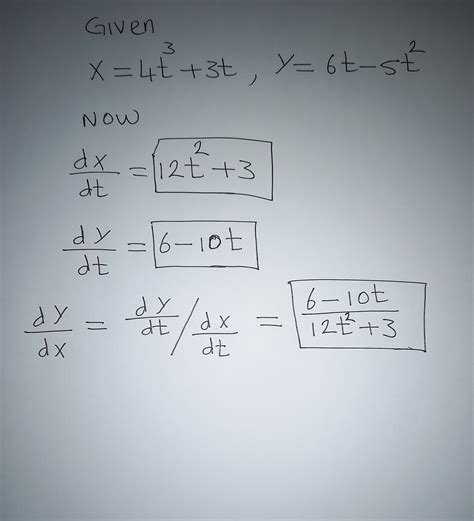 Given
x = 4t³ + 3t , y = 6t - 5t²
NOW
dx/dt = 12t² + 3
dy/dt = 6 - 10t
dy/dx = dy/dt / dx/dt = (6 - 10t)/(12t² + 3)